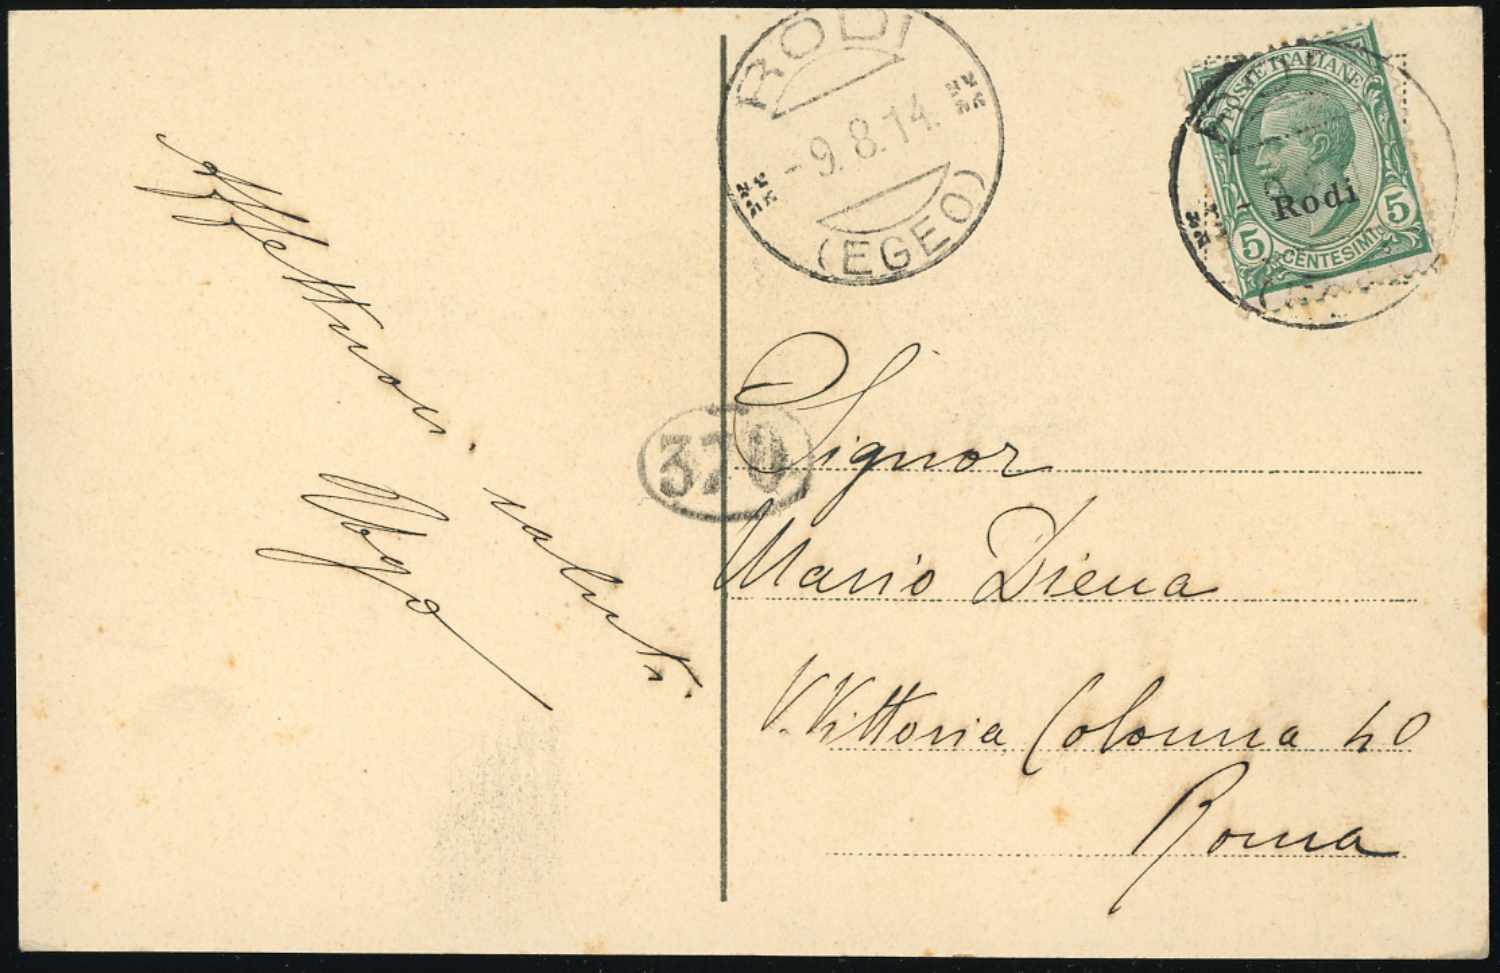 RODI
- 9. 8. 14.
(EGEO)
POSTE ITALIANE
Rodi
5 CENTESIMI 5
Affettuosi saluti.
Ugo
370
Signor
Mario Diena
V. Vittoria Colonna 40
Roma